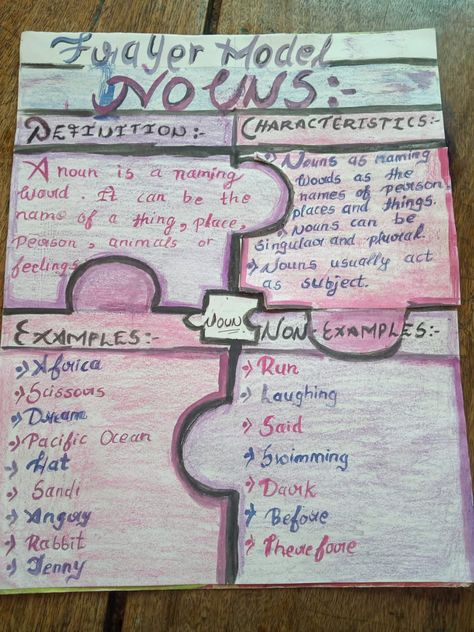 Frayer Model
NOUNS:-
DEFINITION:-
A noun is a naming
word. It can be the
name of a thing, place,
person, animals or
feelings
CHARACTERISTICS:-
Nouns as naming
words as the
names of person,
places and things.
Nouns can be
singular and plural.
Nouns usually act
as subject.
NOUN
EXAMPLES:-
Africa
Scissors
Dream
Pacific Ocean
Hat
Sandi
Angry
Rabbit
Jenny
NON-EXAMPLES:-
Run
Laughing
Said
Swimming
Dark
Before
Therefore